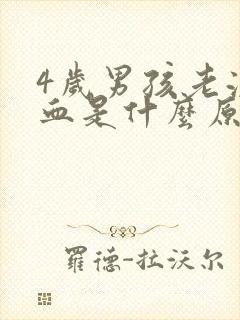 4歲男孩老
血是什麼原
羅德-拉沃尔